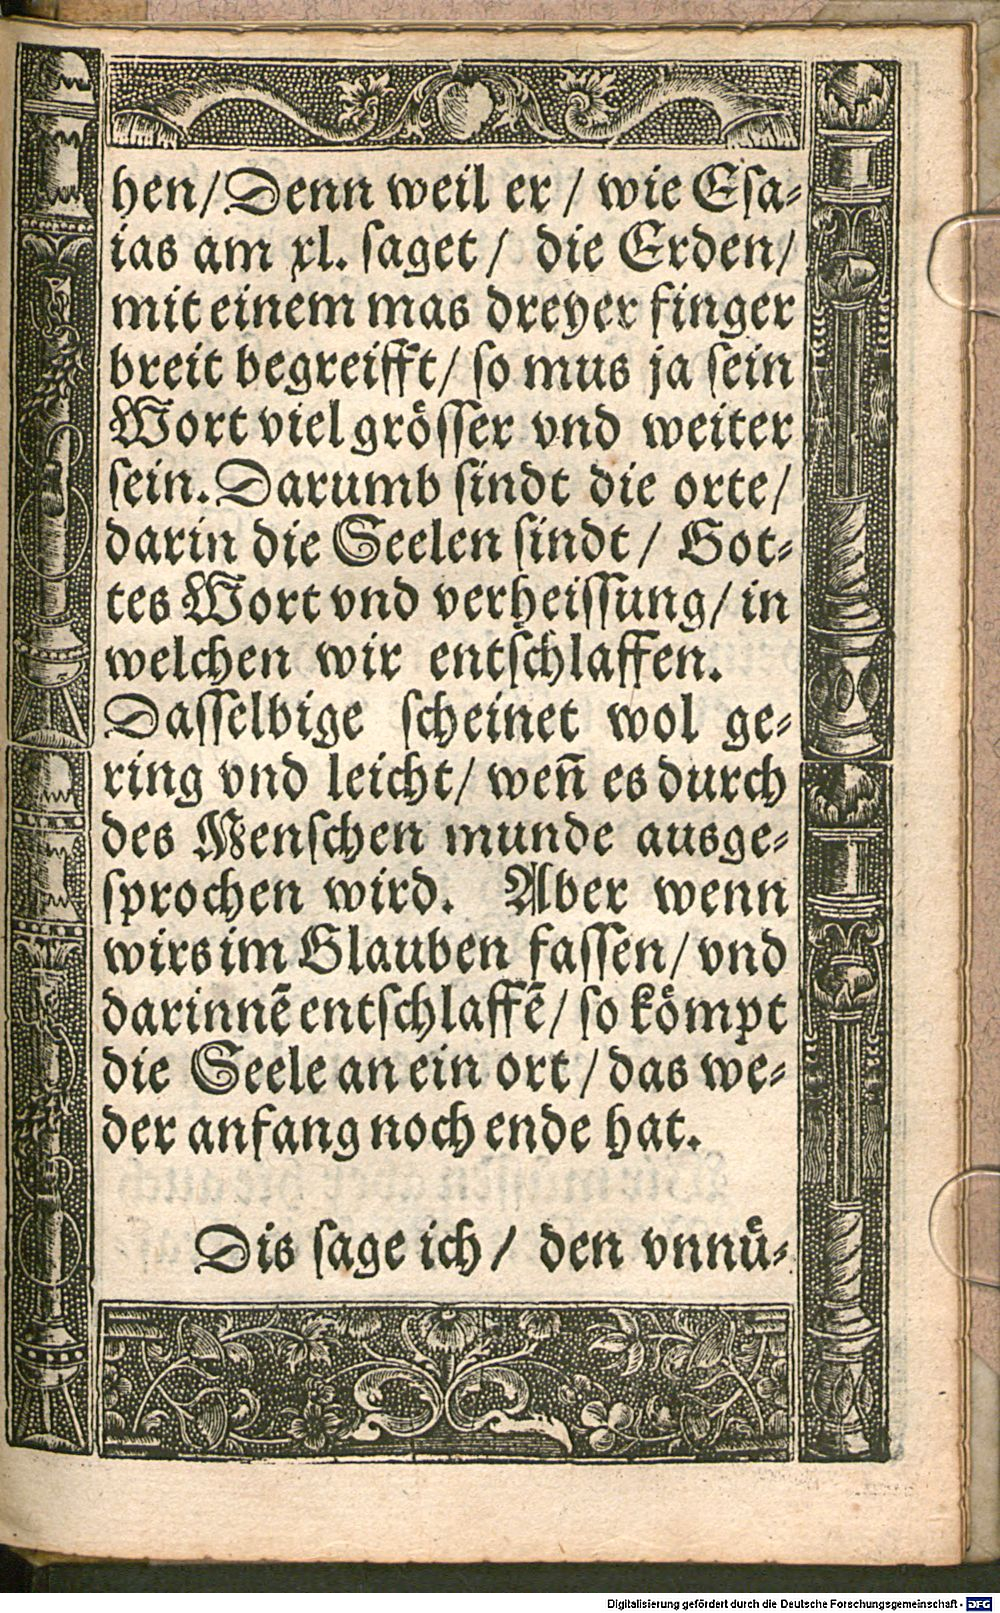 hen/ Denn weil er / wie Esa⸗
ias am xl. saget / die Erden/
mit einem mas dreyer finger
breit begreifft/ so mus ja sein
Wort viel grösser vnd weiter
sein. Darumb sindt die orte/
darin die Seelen sindt / Got⸗
tes Wort vnd verheissung/ in
welchen wir entschlaffen.
Dasselbige scheinet wol ge⸗
ring vnd leicht/ weñ es durch
des Menschen munde ausge⸗
sprochen wird. Aber wenn
wirs im Glauben fassen/ vnd
darinnē entschlaffē/ so kömpt
die Seele an ein ort / das we⸗
der anfang noch ende hat.
Dis sage ich / den vnnü⸗
Digitalisierung gefördert durch die Deutsche Forschungsgemeinschaft - DFG